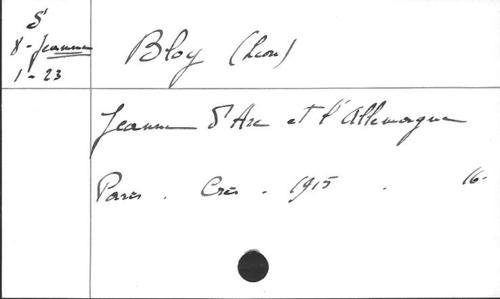 S
8 - Jeanne
1 - 23
Bloy (Léon)
Jeanne d'Arc et l'Allemagne
Paris . Crès . 1915 . 16.